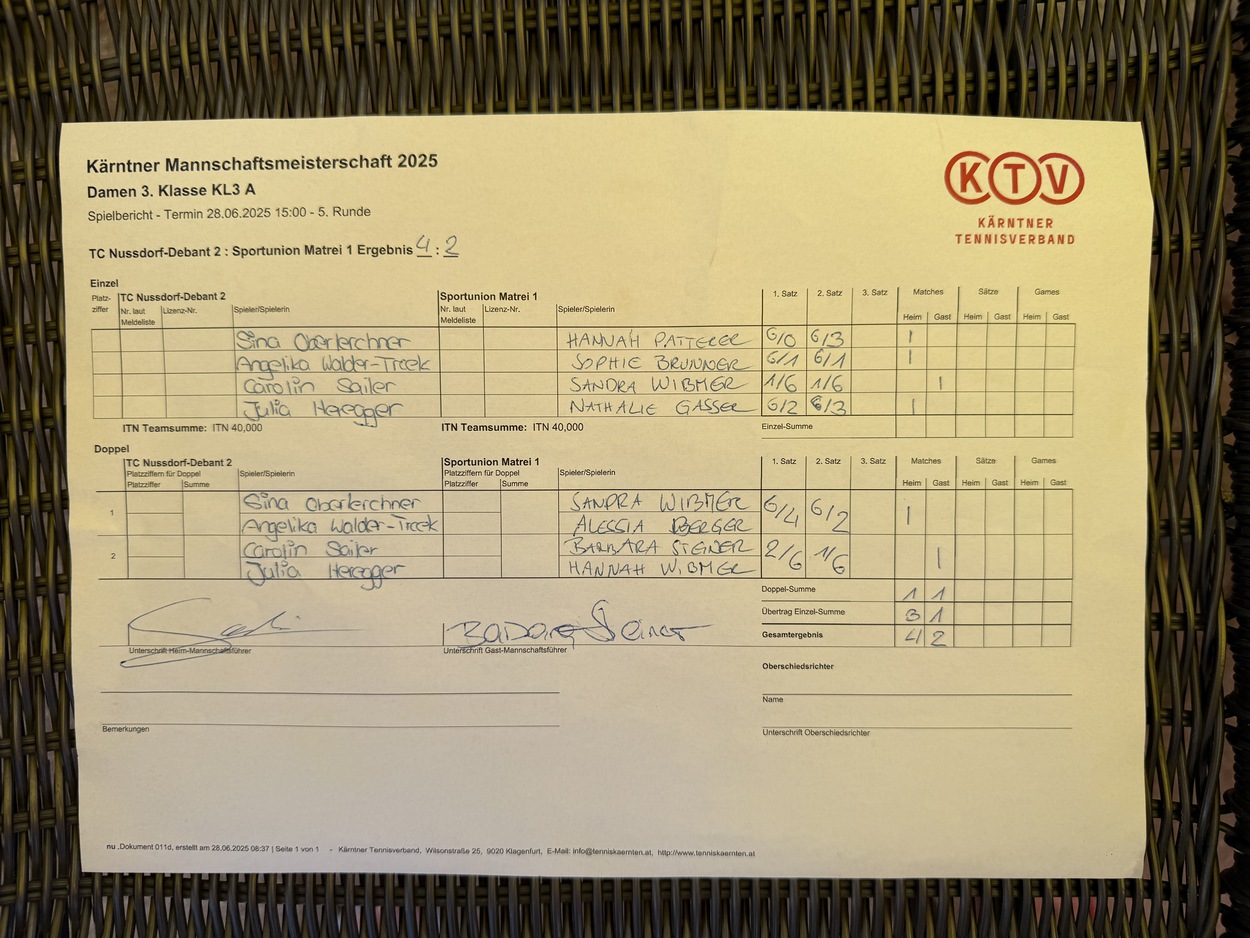 Kärntner Mannschaftsmeisterschaft 2025
Damen 3. Klasse KL3 A
Spielbericht - Termin 28.06.2025 15:00 - 5. Runde
KTV
KÄRNTNER
TENNISVERBAND
TC Nussdorf-Debant 2 : Sportunion Matrei 1 Ergebnis 4 : 2
Einzel
Platz-ziffer TC Nussdorf-Debant 2 Sportunion Matrei 1 1. Satz 2. Satz 3. Satz Matches Sätze Games
Nr. laut Meldeliste Lizenz-Nr. Spieler/Spielerin Nr. laut Meldeliste Lizenz-Nr. Spieler/Spielerin Heim Gast Heim Gast Heim Gast
Sina Oberlerchner HANNAH PATTERER 6/0 6/3 |
Angelika Walder-Track SOPHIE BRUNNER 6/1 6/1 |
Carolin Sailer SANDRA WIBMER 1/6 1/6 |
Julia Heregger NATHALIE GASSER 6/2 6/3 |
ITN Teamsumme: ITN 40,000 ITN Teamsumme: ITN 40,000 Einzel-Summe
Doppel
TC Nussdorf-Debant 2 Sportunion Matrei 1 1. Satz 2. Satz 3. Satz Matches Sätze Games
Platzziffern für Doppel Spieler/Spielerin Platzziffern für Doppel Spieler/Spielerin
Platzziffer Summe Platzziffer Summe Heim Gast Heim Gast Heim Gast
Sina Oberlerchner SANDRA WIBMER
1 6/4 6/2 |
Angelika Walder-Track ALESSIA BERGER
Carolin Sailer BARBARA STEINER
2 2/6 1/6 |
Julia Heregger HANNAH WIBMER
Doppel-Summe 1 1
Übertrag Einzel-Summe 3 1
Gesamtergebnis 4 2
Unterschrift Heim-Mannschaftsführer Unterschrift Gast-Mannschaftsführer
Oberschiedsrichter
Name
Bemerkungen
Unterschrift Oberschiedsrichter
nu .Dokument 011d, erstellt am 28.06.2025 08:37 | Seite 1 von 1 - Kärntner Tennisverband, Wilsonstraße 25, 9020 Klagenfurt, E-Mail: info@tenniskaernten.at, http://www.tenniskaernten.at